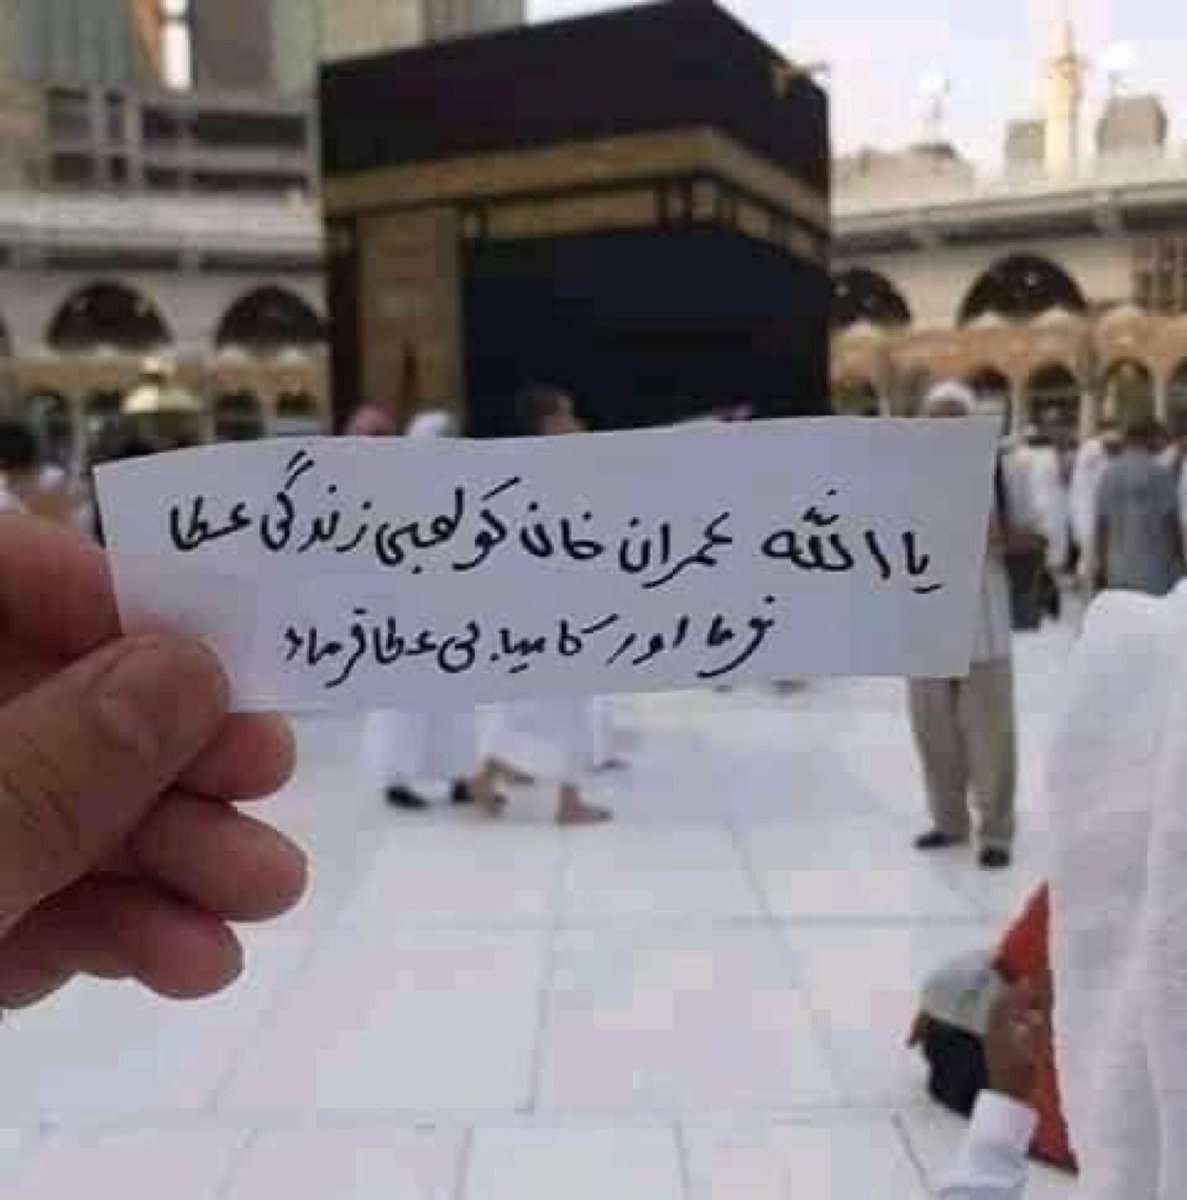 یا اللہ عمران خان کو لمبی زندگی عطا
فرما اور کامیابی عطا فرماد